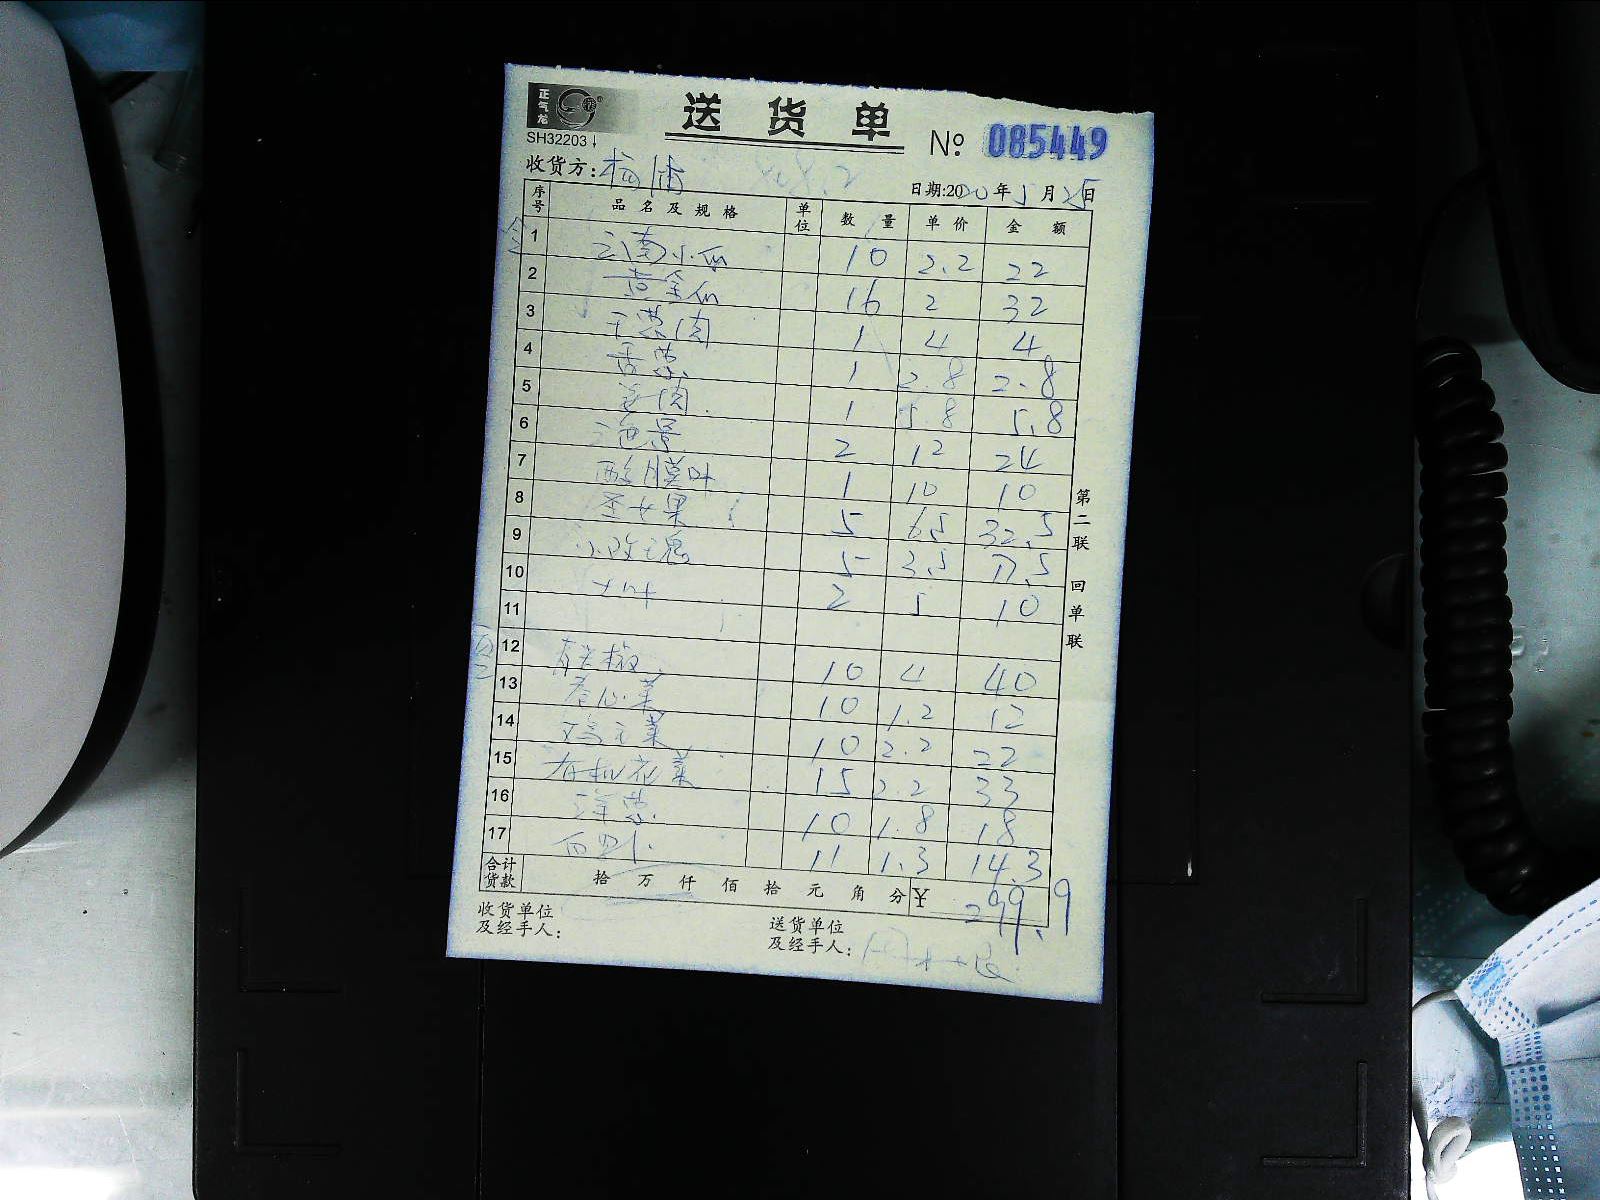 正气龙
送货单
SH32203
№ 085449
收货方: 杨浦
日期:2020年5月25日
序号 品名及规格 单位 数量 单价 金额
1 云南小瓜 10 2.2 22
2 黄金瓜 16 2 32
3 干葱肉 1 4 4
4 香葱 1 2.8 2.8
5 姜肉 1 5.8 5.8
6 2 12 24
7 酸膜叶 1 10 10
8 圣女果 5 6.5 32.5
9 小玫瑰 5 3.5 17.5
10 2 5 10
11
12 青尖椒 10 4 40
13 卷心菜 10 1.2 12
14 鸡毛菜 10 2.2 22
15 有机花菜 15 2.2 33
16 洋葱 10 1.8 18
17 11 1.3 14.3
合计货款 拾 万 仟 佰 拾 元 角 分 ¥ 299.9
收货单位及经手人:
送货单位及经手人:
第二联 回单联